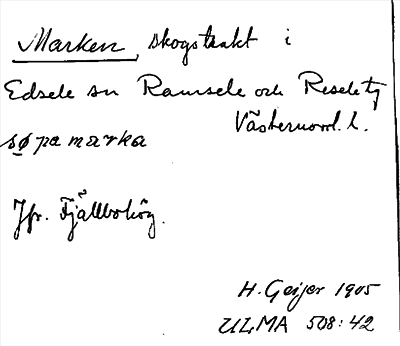 Marken, skogstrakt i
Edsele sn Ramsele och Resele tg
Västernorrl. l.
sø pa marka
Jfr. Fjällbohög.
H. Geijer 1905
ULMA 508:42